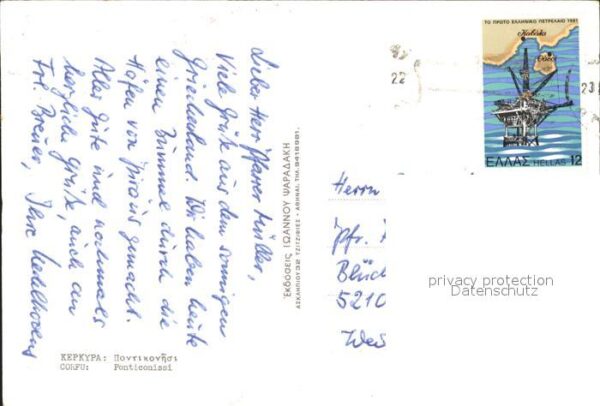 Lieber Herr Pfarrer Müller,
Viele Grüße aus dem sonnigen
Griechenland. Wir haben heute
einen Bummel durch die
Häfen von Piräus gemacht.
Alles Gute und nochmals
herzliche Grüße, auch an
Frl. Breuer, Ihre
ΚΕΡΚΥΡΑ: Ποντικονήσι
CORFU: Ponticonissi
Ἐκδοσεις ΙΩΑΝΝΟΥ ΨΑΡΑΔΑΚΗ
ΑΣΚΛΗΠΙΟΥ 32 ΤΖΙΤΖΙΦΙΕΣ - ΑΘΗΝΑΙ. ΤΗΛ. 9418981.
ΤΟ ΠΡΩΤΟ ΕΛΛΗΝΙΚΟ ΠΕΤΡΕΛΑΙΟ 1981
Καβάλα
Θάσος
ΕΛΛΑΣ HELLAS 12
22
23
Herrn
Pfr.
Blüc
5210
privacy protection
Datenschutz